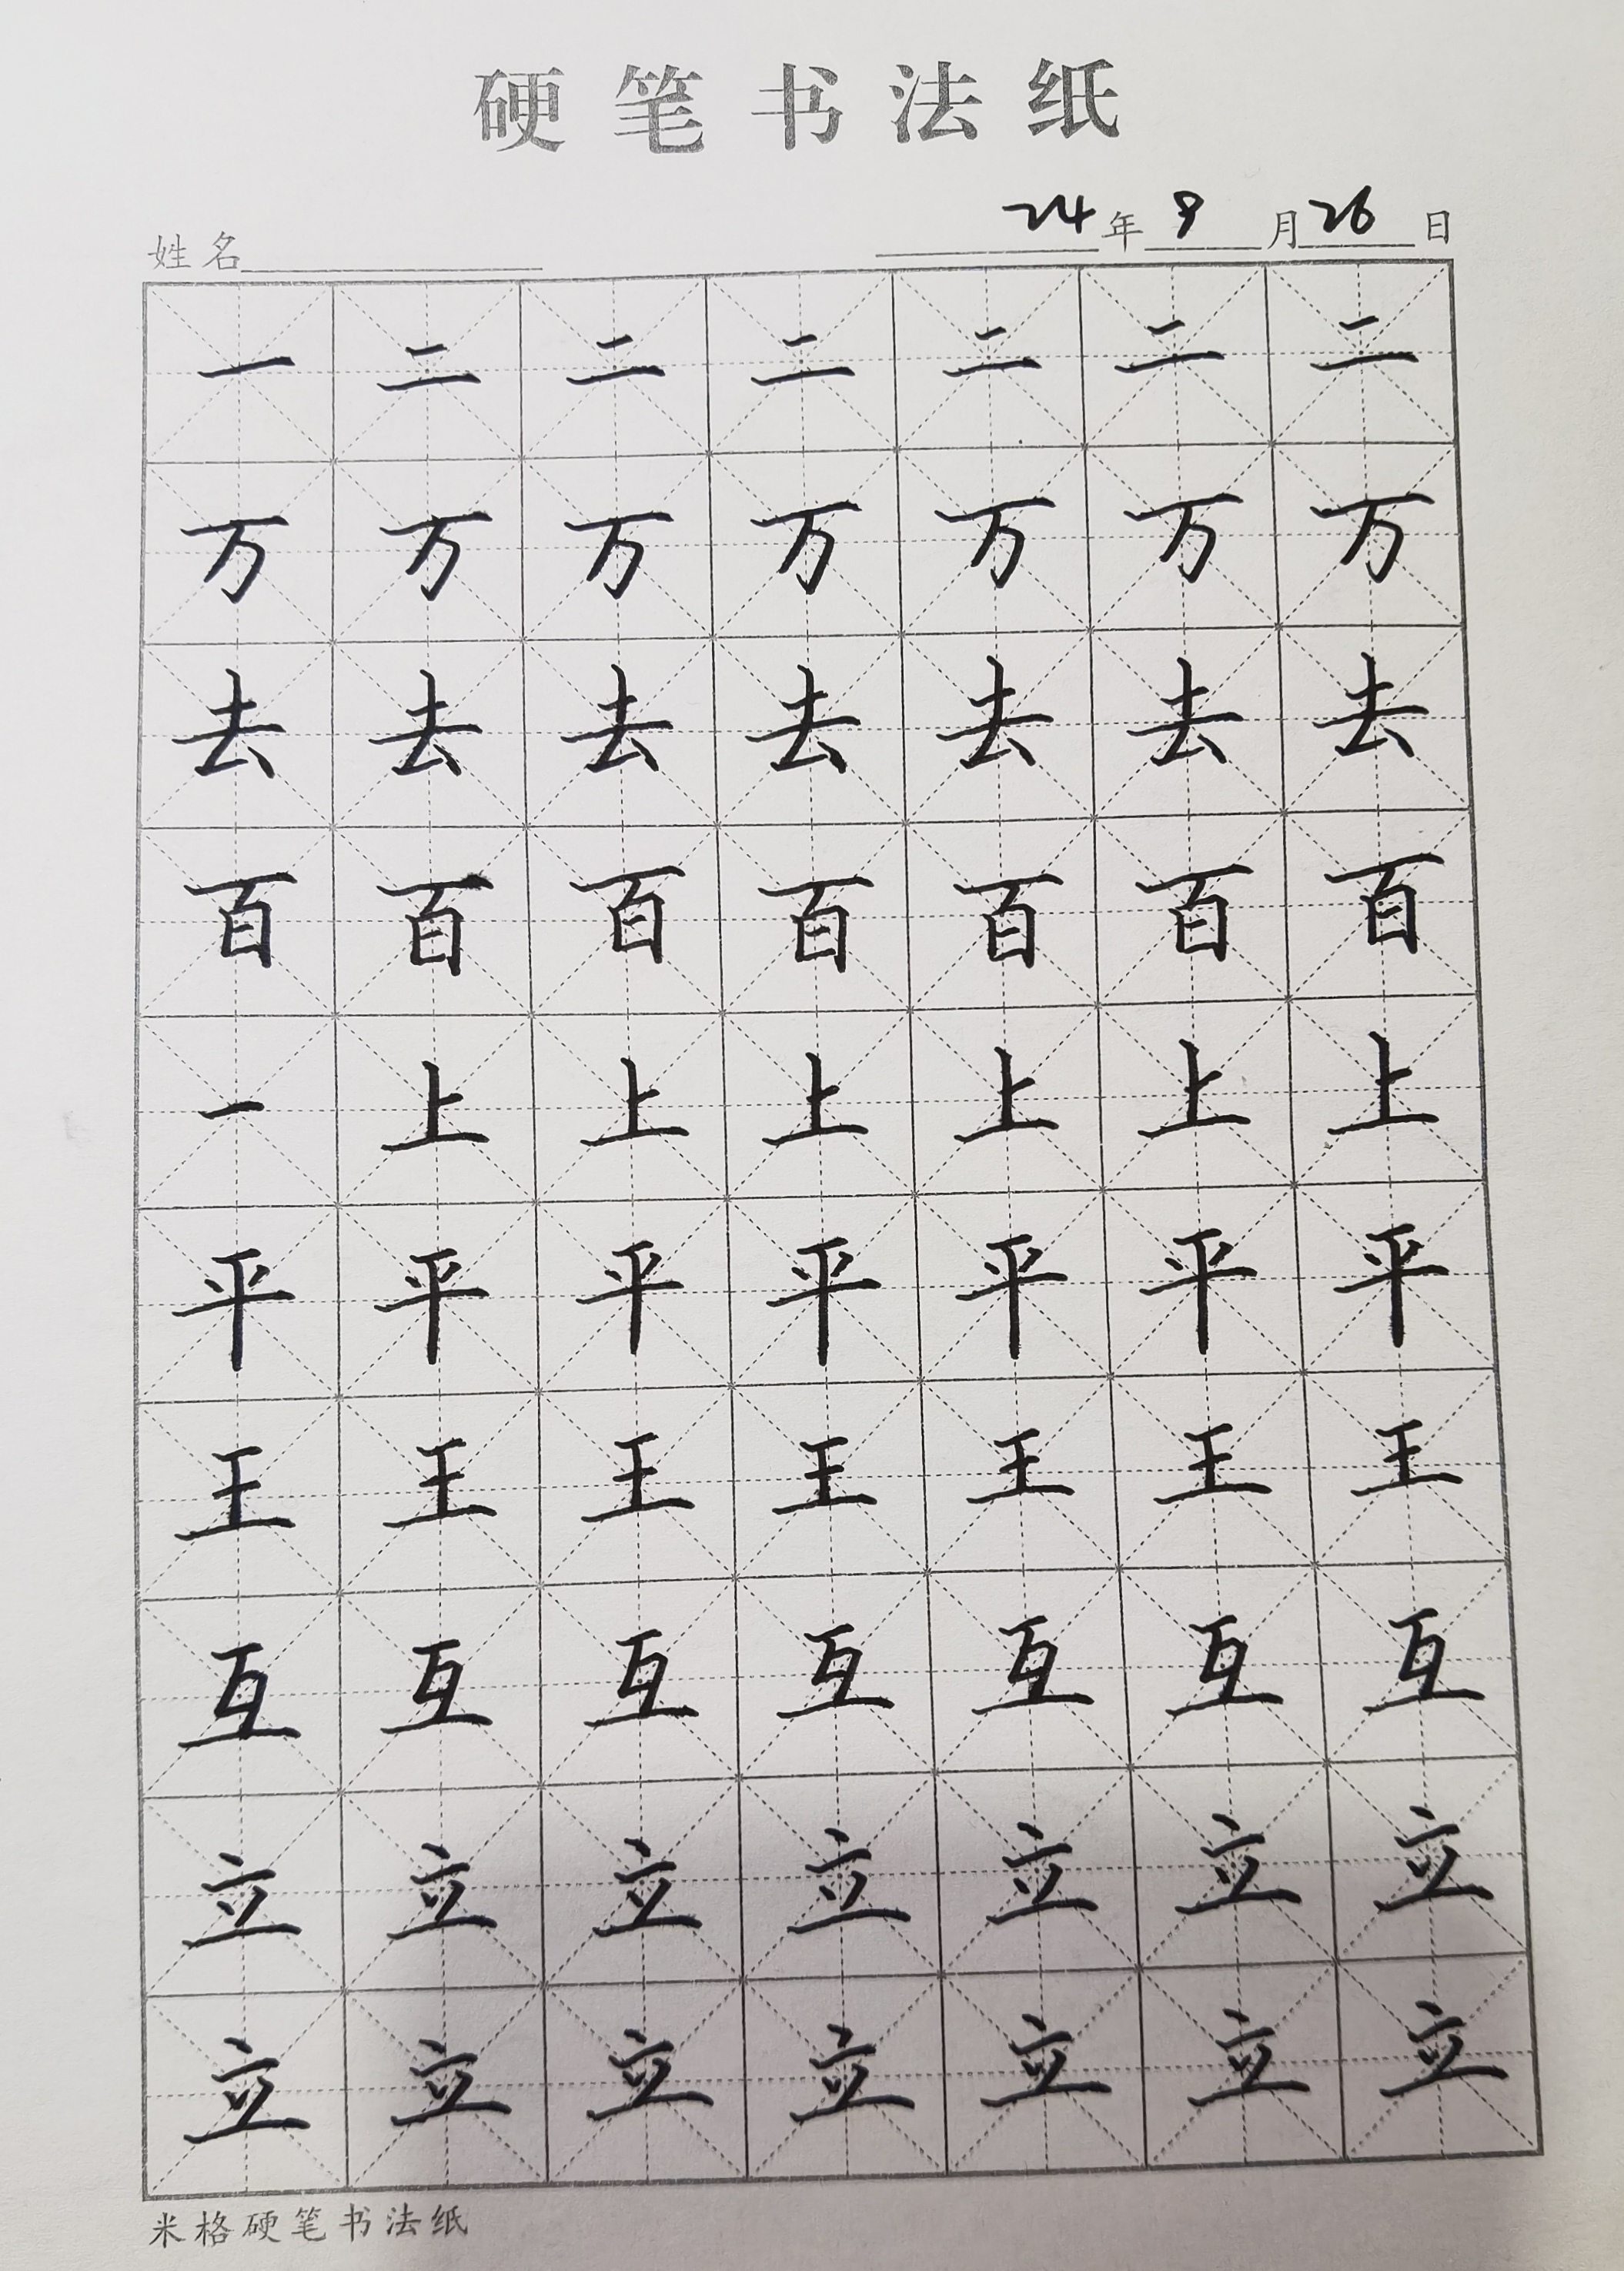 硬笔书法纸
姓名 24年9月26日
一二二二二二二
万万万万万万万
去去去去去去去
百百百百百百百
一上上上上上上
平平平平平平平
王王王王王王王
互互互互互互互
立立立立立立立
立立立立立立立
米格硬笔书法纸